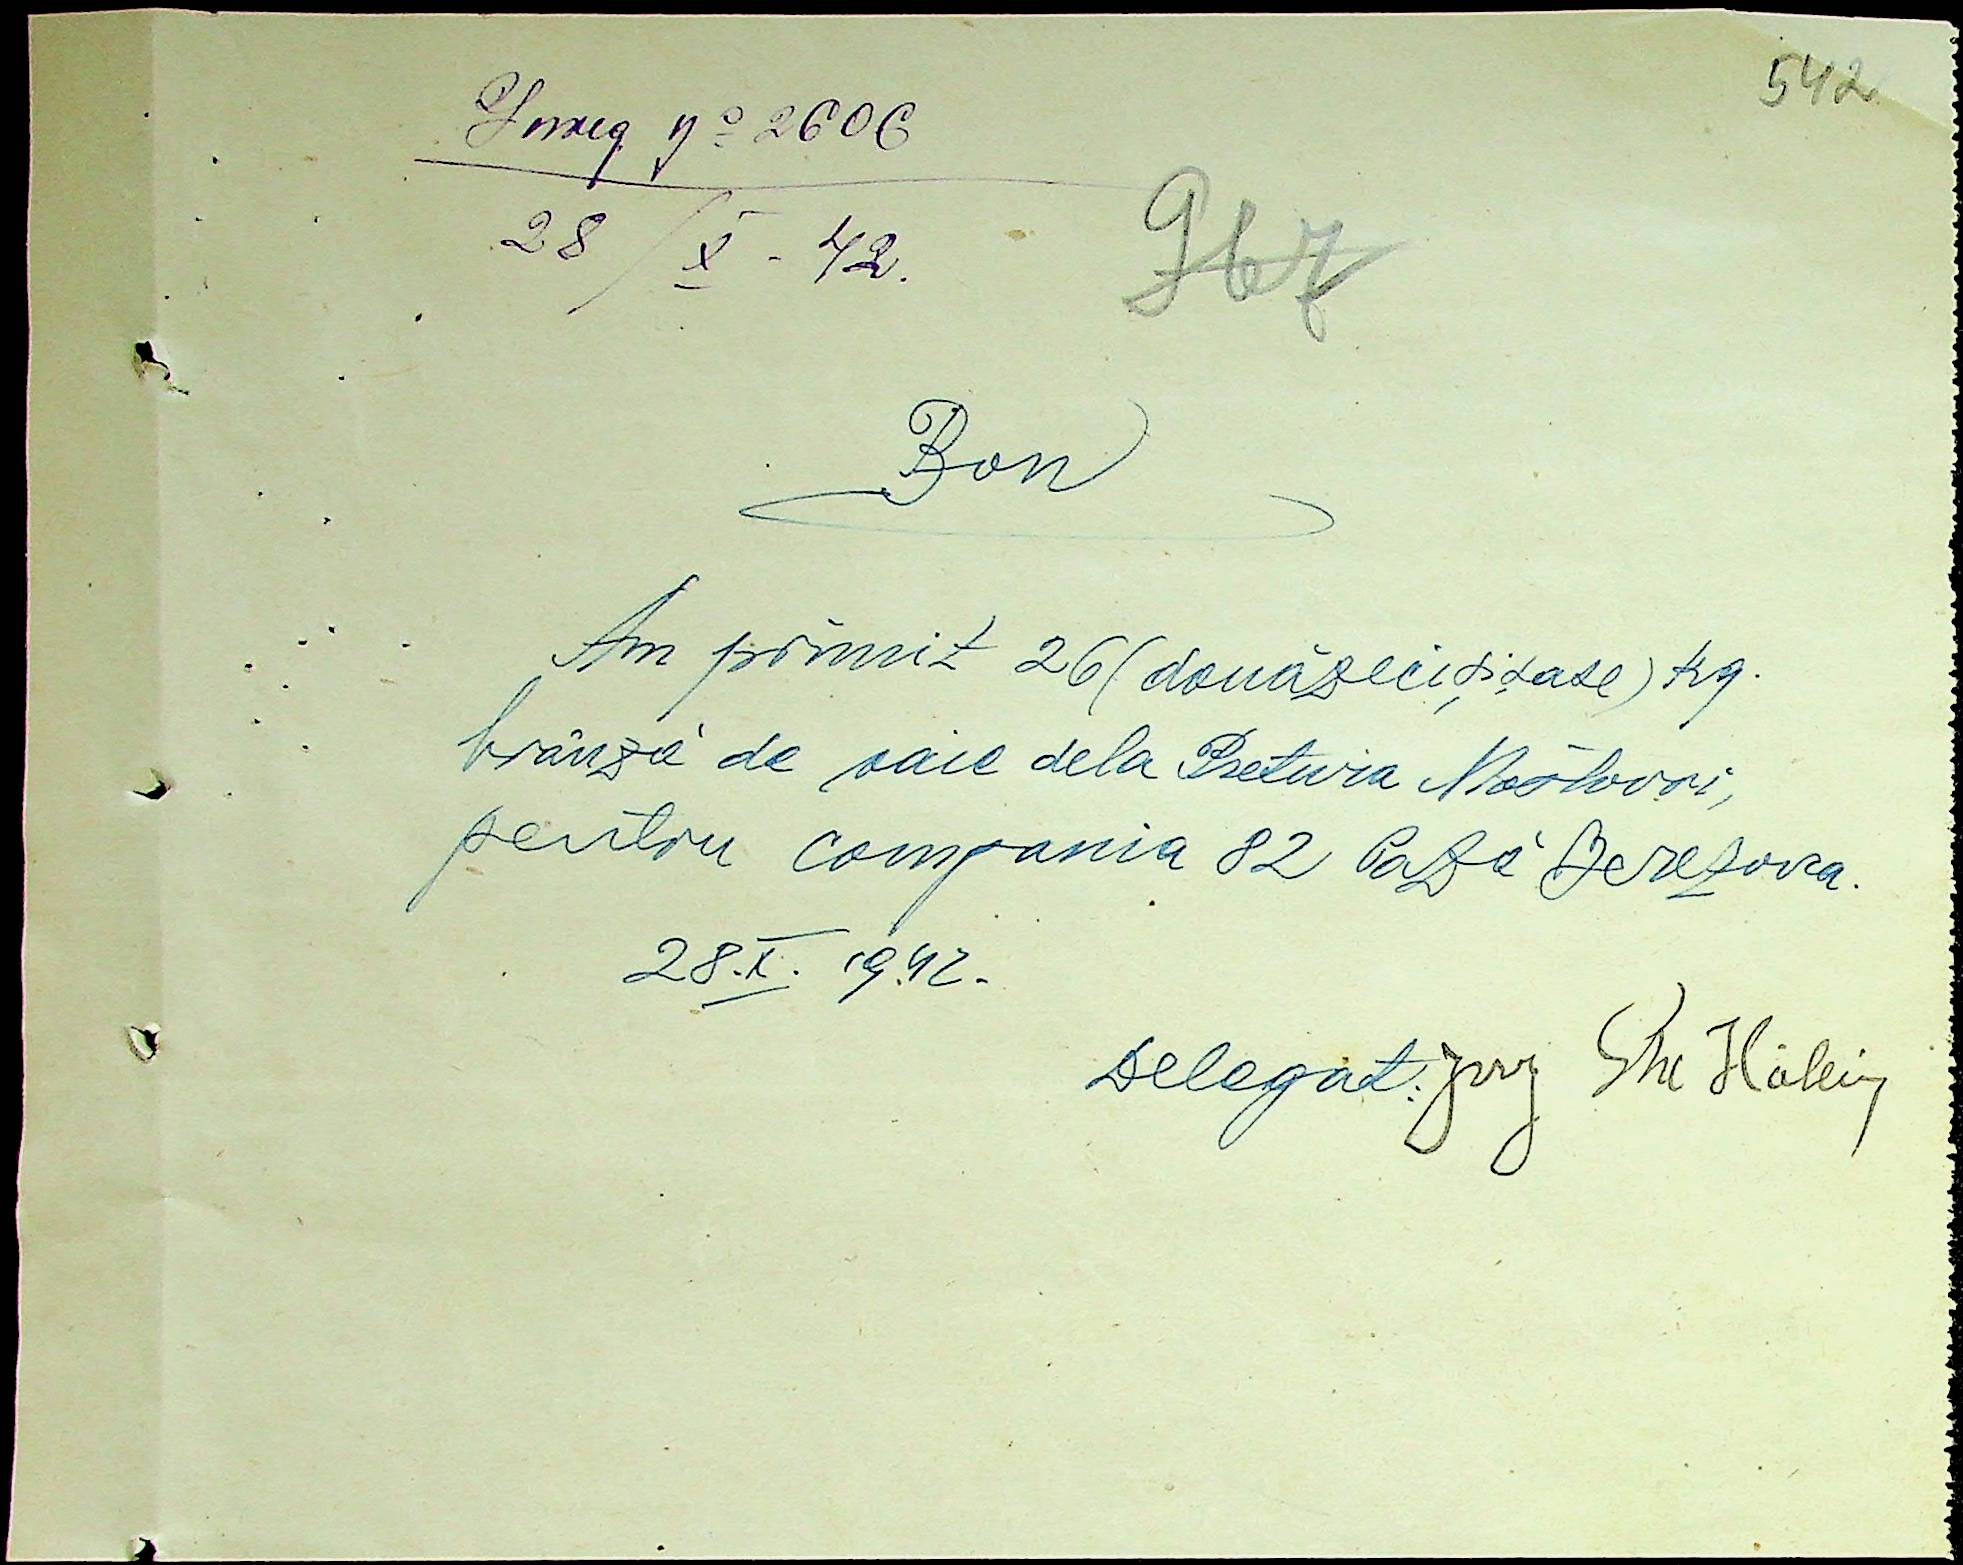 542
Înreg No 2606
28/X - 42.
967
Bon
Am primit 26 (douăzecișișase) kg.
brânză de oaie dela Pretura Mostovoi,
pentru compania 82 Pază Berezovca.
28.X. 1942.
Delegat: